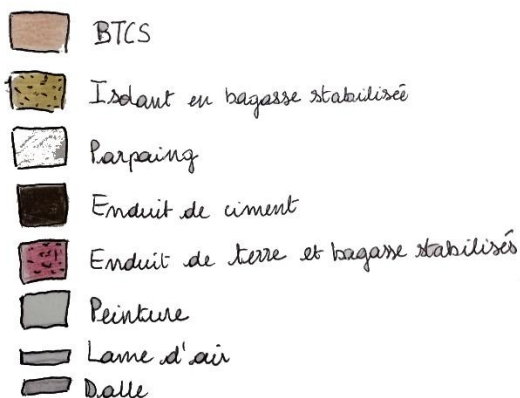 BTCS
Isolant en bagasse stabilisée
Parpaing
Enduit de ciment
Enduit de terre et bagasse stabilisés
Peinture
Lame d'air
Dalle